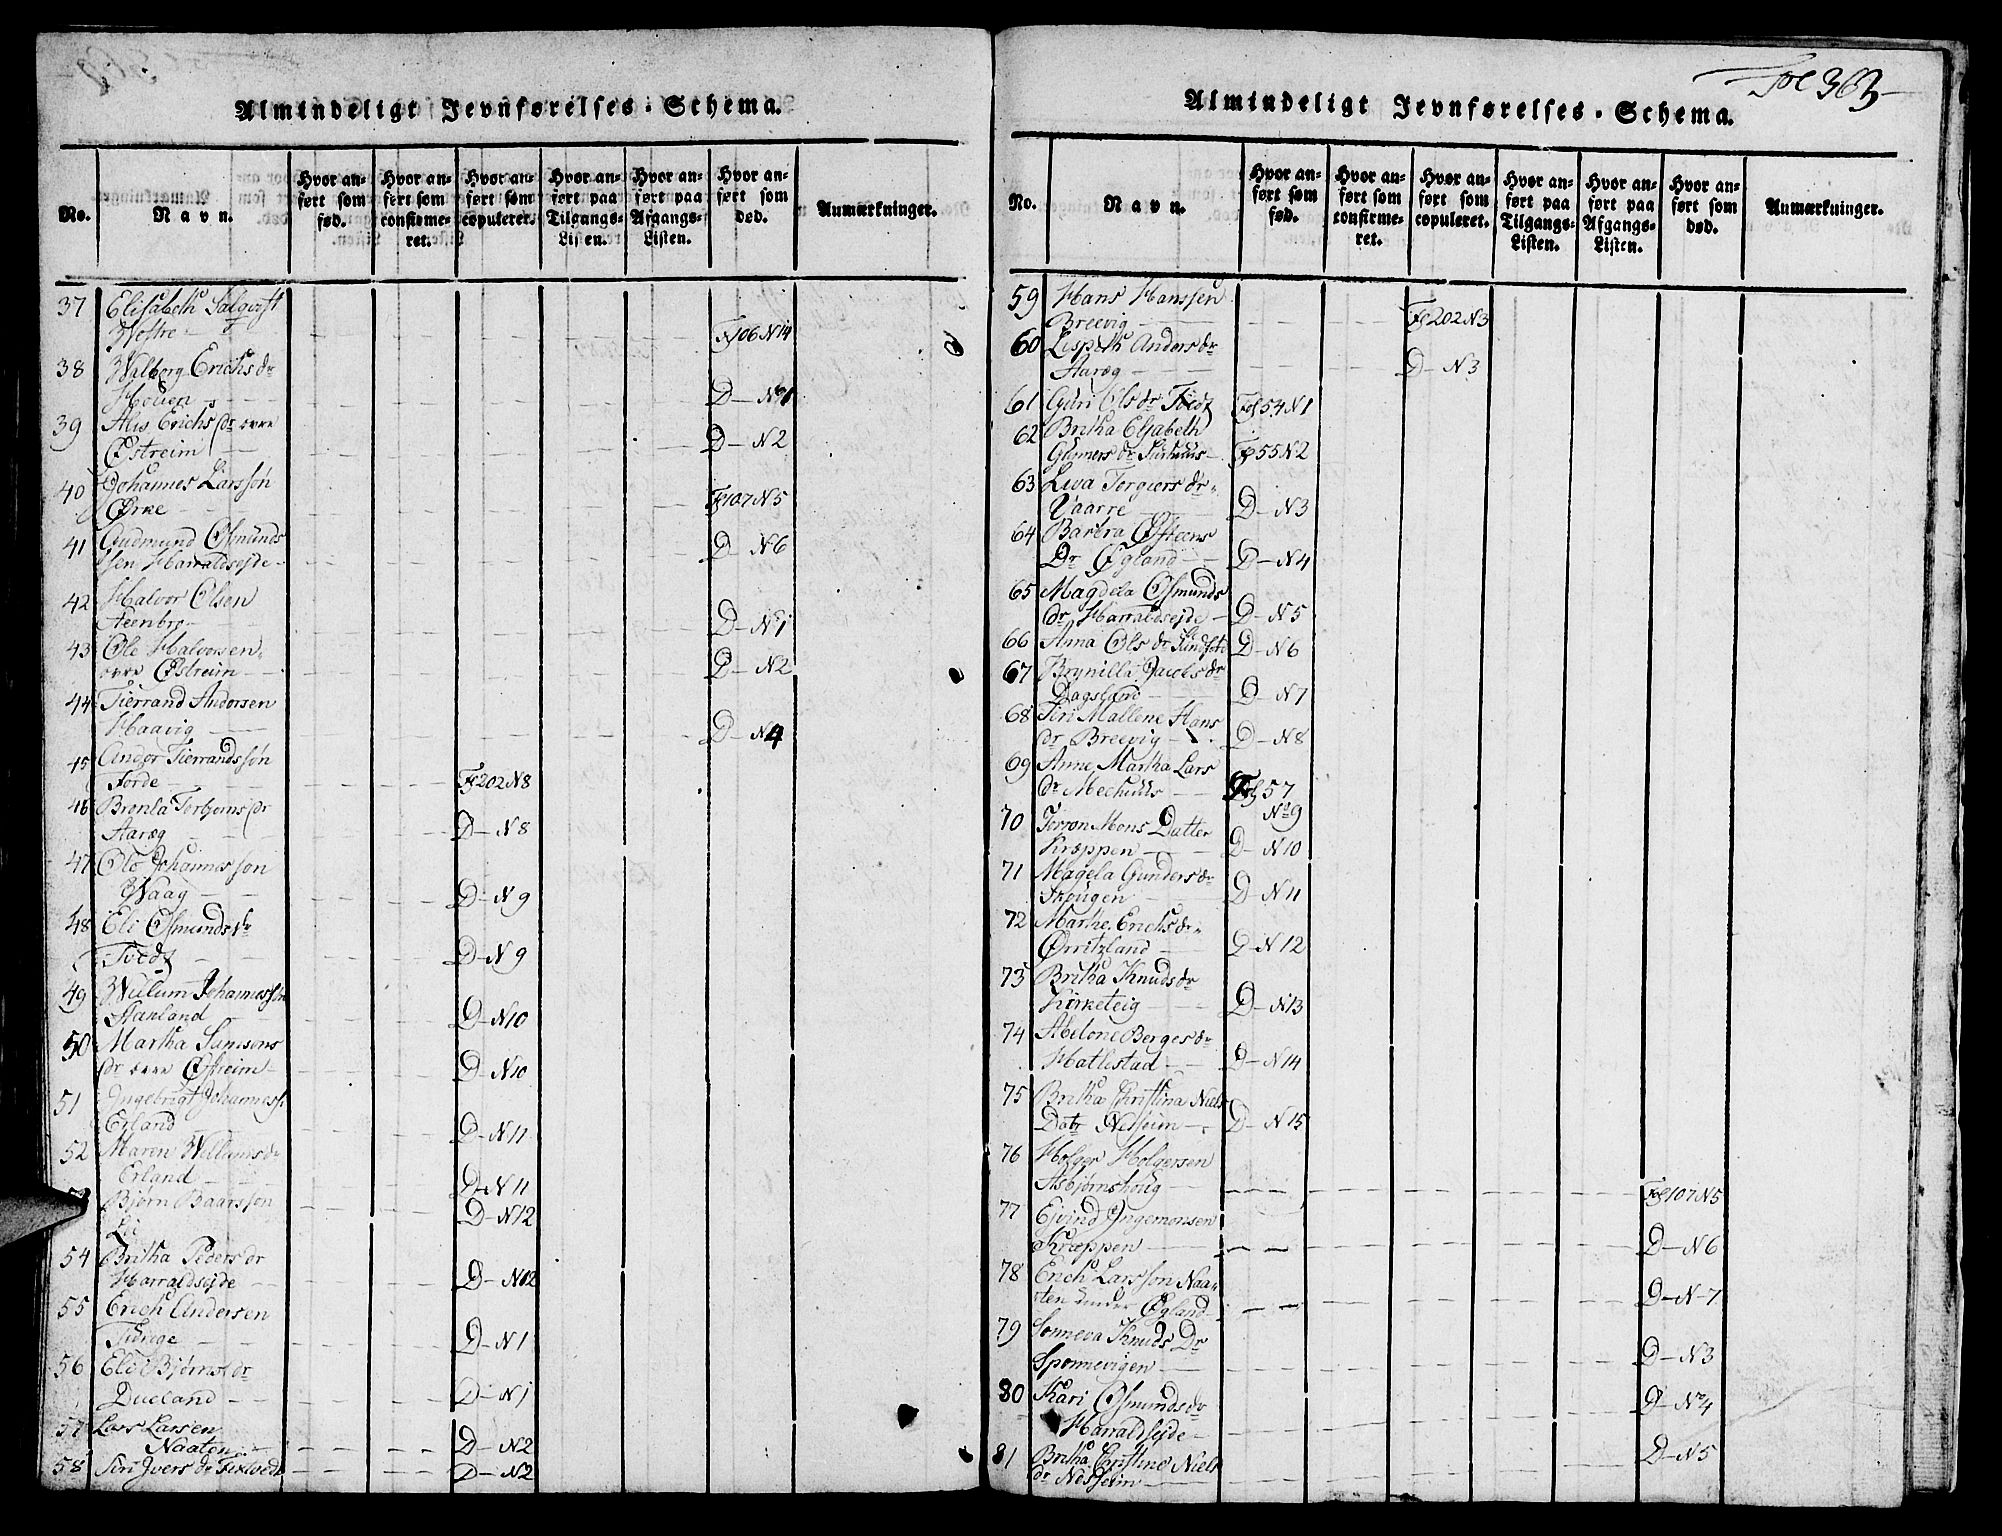 Almindeligt Jevnførelses-Schema.
No.
Navn.
Hvor anført som fød.
Hvor anført som confirmeret.
Hvor anført som copuleret.
Hvor anført paa Tilgangs-Listen.
Hvor anført paa Afgangs-Listen.
Hvor anført som død.
Anmærkninger.
37 Elisabeth Salqvist
Westre Fg 106 N 14
38 Walberg Erichs dr
Houen D — No 1
39 Alis Erichs dr øvre
Østreim D — N 2
40 Johannes Larssøn
Ørke Fg 107 N 5
41 Gudmund Osmunds
sen Harraldsejde D — N 6
42 Halvor Olsen
Steenbro D — No 1
43 Ole Halvorsen
øvre Østreim D — N 2
44 Tierrand Andersen
Haavig D — N 4
45 Ander Tierrandssøn
Førde Fg 202 N 8
46 Bronla Torbjørns dr
Aaræg D — N 8
47 Ole Johannessøn
Waag D — N 9
48 Eli Osmunds dr
Tvedt D — N 9
49 Willum Johannessøn
Stanland D — N 10
50 Martha Samsons
dr øvre Østreim D — N 10
51 Ingebrigt Johanness:
Erland D — N 11
52 Maren Wellums dr
Erland D — N 11
53 Bjørn Baarssøn
Lie D — N 12
54 Britha Peders dr
Harraldsejde D — N 12
55 Erich Andersen
D — N 1
56 Eli Bjørns dr
Dueland D — N 1
57 Lars Larsen
Naaten D — N 2
58 Siri Ivers dr D — N 2
Fol 363
Almindeligt Jevnførelses-Schema.
No.
Navn.
Hvor anført som fød.
Hvor anført som confirmeret.
Hvor anført som copuleret.
Hvor anført paa Tilgangs-Listen.
Hvor anført paa Afgangs-Listen.
Hvor anført som død.
Anmærkninger.
59 Hans Hanssen
Breevig Fg 202 N 3
60 Lispeth Anders dr
Aaræg D — N 3
61 Guri Ols dr Tvedt Fol 54 N 1
62 Britha Elsabeth
Gunners dr Fg 55 N 2
63 Liva Torgiers dr
Vaarre D — N 3
64 Barbra Østeens
Dr Øgland D — N 4
65 Magdela Osmunds
dr Harraldsejde D — N 5
66 Anna Ols dr D — N 6
67 Brynilla Jacobs dr
Dagsland D — N 7
68 Siri Mallene Hans
dr Breevig D — N 8
69 Anne Martha Lars
dr Mechuus Fol 57
No 9
70 Torron Mons Datter
Kræppen D — N 10
71 Magela Gunders dr
Skougen D — N 11
72 Marthe Erichs dr
Ørritzland D — N 12
73 Britha Knuds dr
Kirketeig D — N 13
74 Abelone Berges dr
Hatlestad D — N 14
75 Britha Christina Niels
Datr Nesheim D — N 15
76 Holger Holgersen
Asbjørnshoug Fol 107 N 5
77 Ejvind Ingemonsen
Kræppen D — N 6
78 Erich Larssøn Naa-
ten under Øgland D — N 7
79 Sonneva Knuds Dr
Sponnevigen D — N 3
80 Kari Osmunds dr
Harraldsejde D — No 4
81 Britha Christine Niels
dr Nesheim D — N 5